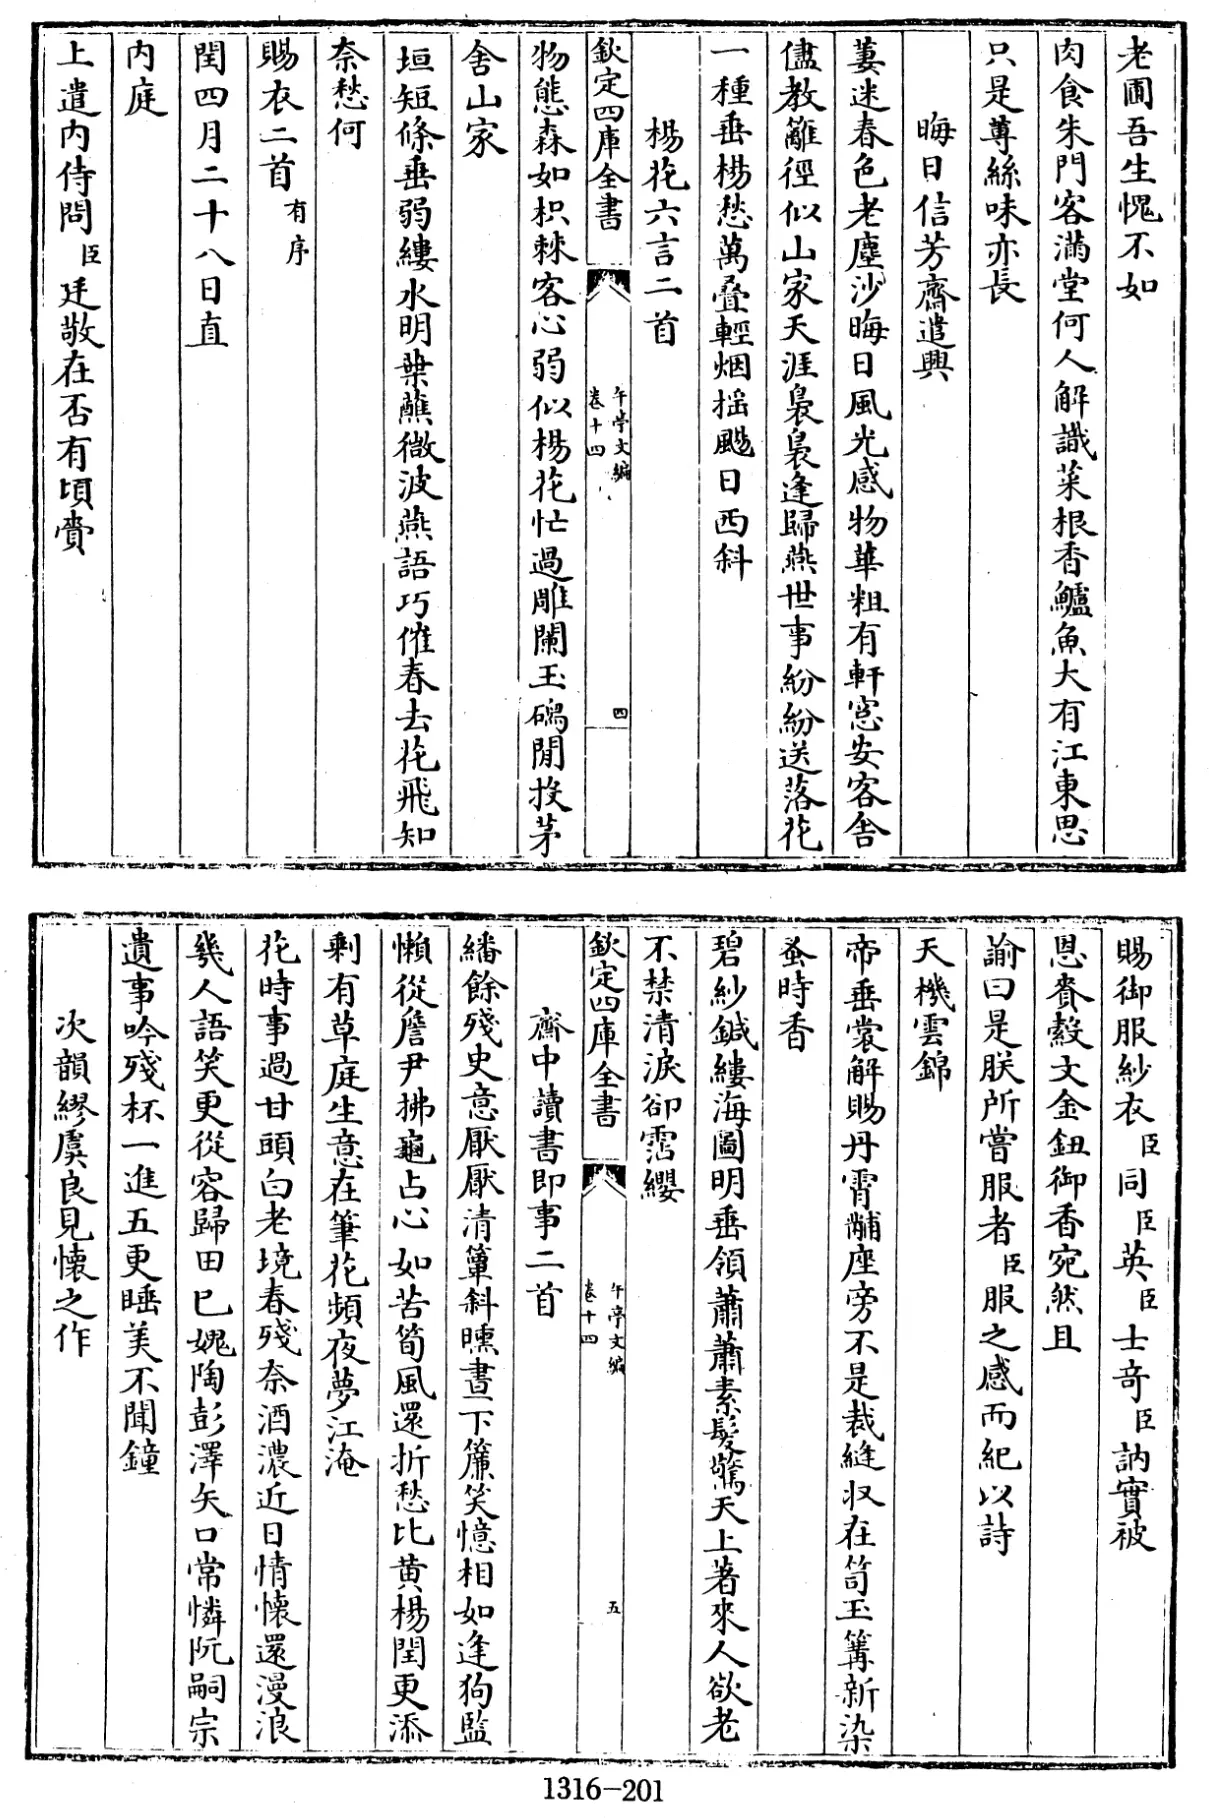 老圃吾生愧不如
肉食朱門客滿堂何人解識菜根香鱸魚大有江東思
只是蓴絲味亦長
晦日信芳齋遣興
萋迷春色老塵沙晦日風光感物華粗有軒窓安客舎
儘教籬徑似山家天涯裊裊逢歸燕世事紛紛送落花
一種垂楊愁萬疊輕烟揺颺日西斜
楊花六言二首
欽定四庫全書
午亭文編
卷十四
四
物態森如枳棘客心弱似楊花忙過雕闌玉磶閒投茅
舍山家
垣短條垂弱縷水明葉蘸微波燕語巧催春去花飛知
奈愁何
賜衣二首有序
閏四月二十八日直
内庭
上遣内侍問臣廷敬在否有頃賫
賜御服紗衣臣同臣英臣士奇臣訥實被
恩賚縠文金鈕御香宛然且
諭曰是朕所嘗服者臣服之感而紀以詩
天機雲錦
帝垂裳解賜丹霄黼座旁不是裁縫収在笥玉篝新染
蚤時香
碧紗鍼縷海圖明垂領蕭蕭素髮驚天上著來人欲老
不禁清淚卻霑纓
欽定四庫全書
午亭文編
卷十四
五
齋中讀書即事二首
繙餘殘史意厭厭清簟斜曛晝下簾笑憶相如逢狗監
懶從詹尹拂龜占心如苦筍風還折愁比黄楊閏更添
剩有草庭生意在筆花頻夜夢江淹
花時事過甘頭白老境春殘奈酒濃近日情懷還漫浪
幾人語笑更從容歸田已媿陶彭澤矢口常憐阮嗣宗
遺事吟殘杯一進五更睡美不聞鐘
次韻繆虞良見懐之作
1316-201